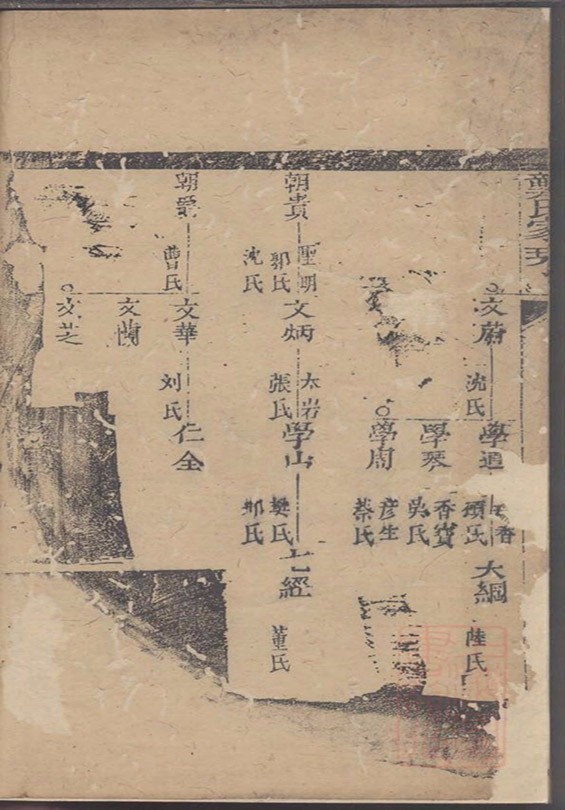 氏家
文蔚
沈氏
學通
香
大綱
陸氏
學琴
香寶
吳氏
學周
彦生
蔡氏
朝貴
聖明
郭氏
沈氏
文炳
太岩
張氏
學山
樊氏
鄭氏
經
董氏
朝爵
曹氏
文華
刘氏
仁全
文蘭
文芝